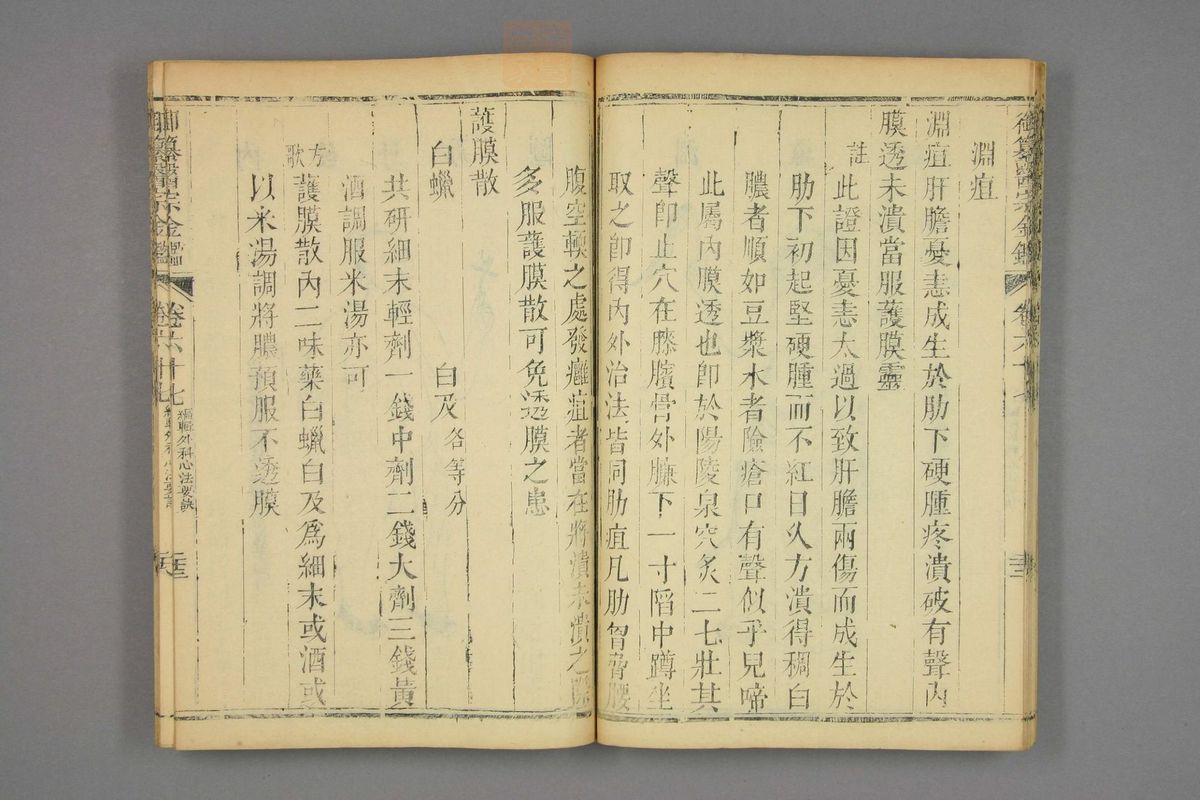 淵疽
淵疽肝膽憂恚成生於肋下硬腫疼潰破有聲內
膜透未潰當服護膜靈
註
此證因憂恚太過以致肝膽兩傷而成生於
肋下初起堅硬腫而不紅日久方潰得稠白
膿者順如豆漿水者險瘡口有聲似乎兒啼
此屬內膜透也卽於陽陵泉穴灸二七壯其
聲卽止穴在膝臏骨外臁下一寸陷中蹲坐
取之卽得內外治法皆同肋疽凡肋胷脅腰
腹空輭之處發癰疽者當在將潰未潰之際
多服護膜散可免透膜之患
護膜散
白蠟 白及各等分
共研細末輕劑一錢中劑二錢大劑三錢黃
酒調服米湯亦可
方歌
護膜散內二味藥白蠟白及爲細末或酒或
以米湯調將膿預服不透膜
御纂醫宗金鑑
卷六十七
編輯外科心法要訣